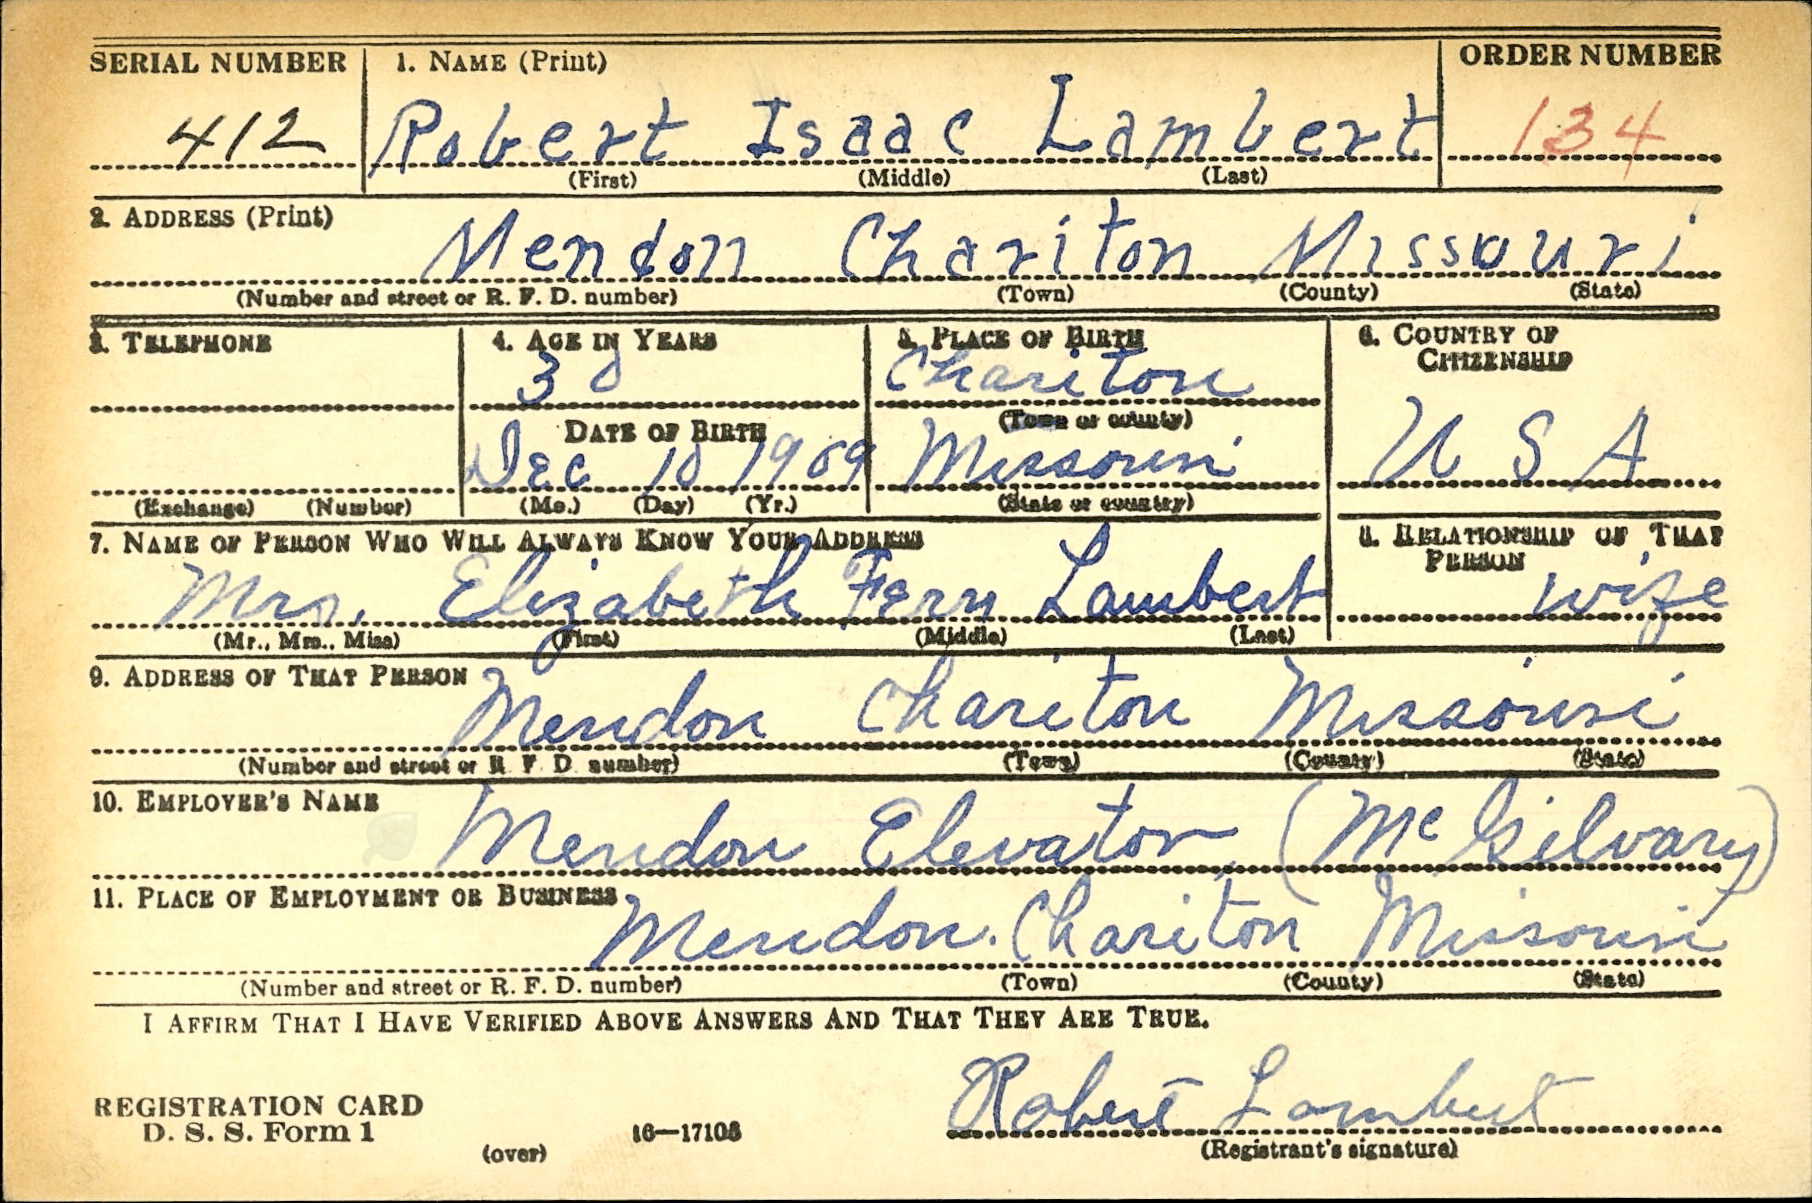 SERIAL NUMBER 1. NAME (Print) ORDER NUMBER
412 Robert Isaac Lambert 134
(First) (Middle) (Last)
2. ADDRESS (Print)
Mendon Chariton Missouri
(Number and street or R. F. D. number) (Town) (County) (State)
3. TELEPHONE 4. AGE IN YEARS 5. PLACE OF BIRTH 6. COUNTRY OF
CITIZENSHIP
30 Chariton
(Town or county)
DATE OF BIRTH
Dec 10 1909 Missouri U S A
(Exchange) (Number) (Mo.) (Day) (Yr.) (State or country)
7. NAME OF PERSON WHO WILL ALWAYS KNOW YOUR ADDRESS 8. RELATIONSHIP OF THAT
PERSON
Mrs. Elizabeth Fern Lambert wife
(Mr., Mrs., Miss) (First) (Middle) (Last)
9. ADDRESS OF THAT PERSON
Mendon Chariton Missouri
(Number and street or R. F. D. number) (Town) (County) (State)
10. EMPLOYER'S NAME
Mendon Elevator (McGilvary)
11. PLACE OF EMPLOYMENT OR BUSINESS
Mendon. Chariton Missouri
(Number and street or R. F. D. number) (Town) (County) (State)
I AFFIRM THAT I HAVE VERIFIED ABOVE ANSWERS AND THAT THEY ARE TRUE.
Robert Lambert
REGISTRATION CARD
D. S. S. Form 1 16—17105
(over) (Registrant's signature)